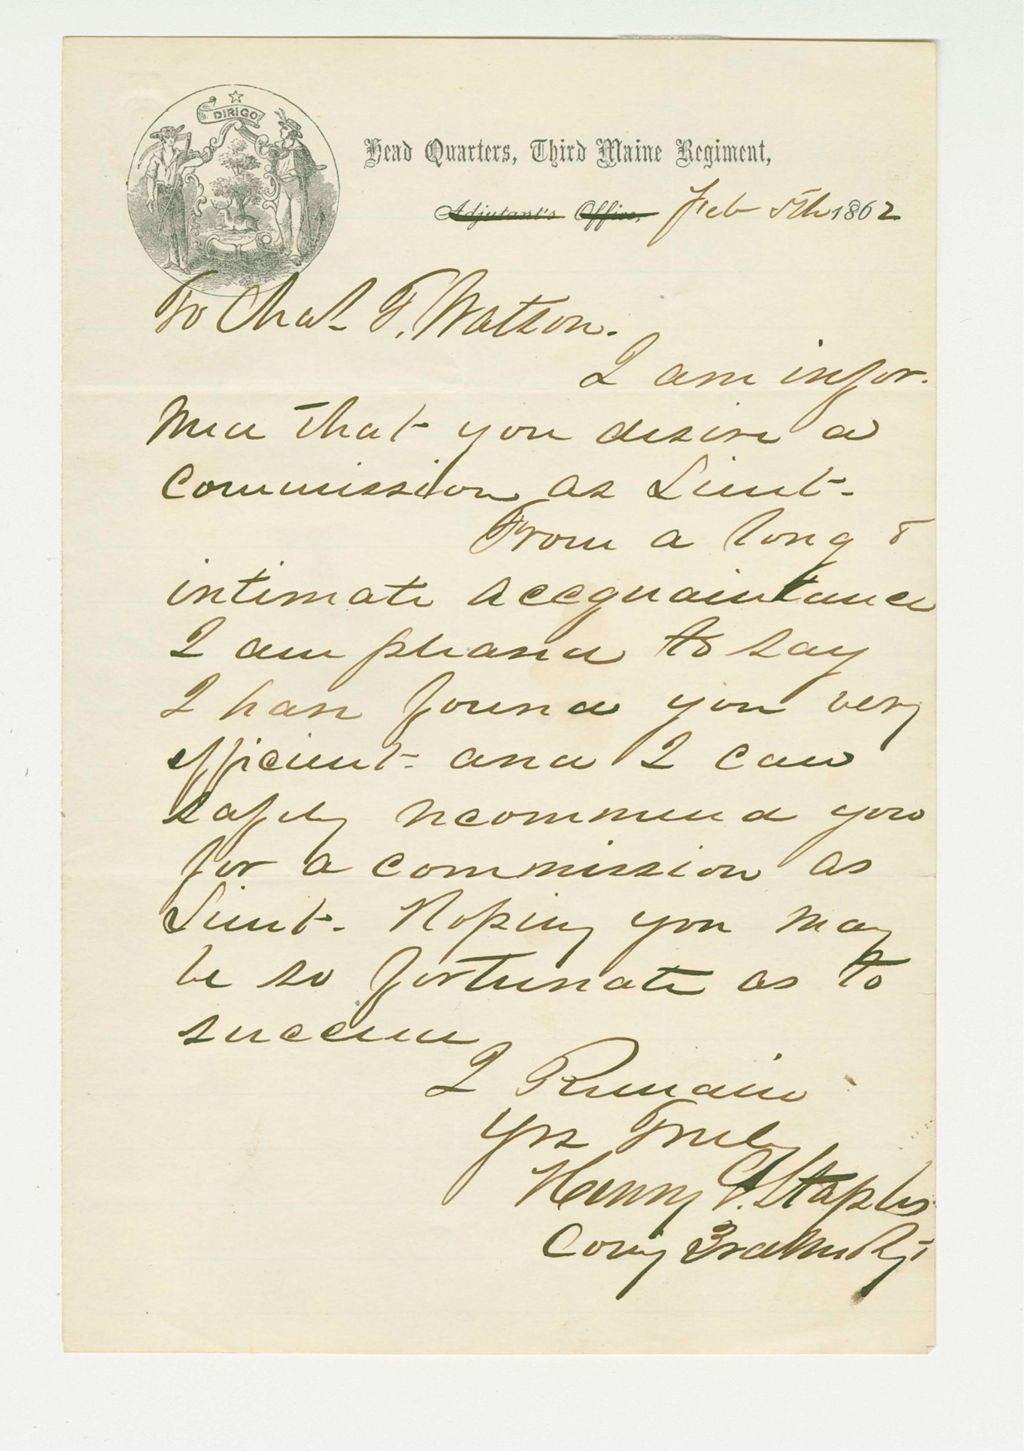 DIRIGO
Head Quarters, Third Maine Regiment,
Adjutant's Office, Feb 5th 1862
To Chas. F. Watson.
I am infor-
med that you desire a
commission as Lieut.
From a long &
intimate accquaintance
I am pleased to say
I have found you very
efficient and I can
safely recommend you
for a commission as
Lieut. Hoping you may
be so fortunate as to
succeed
I Remain
Yrs Truly
Henry G. Staples
Com'g 3rd Me Rgt